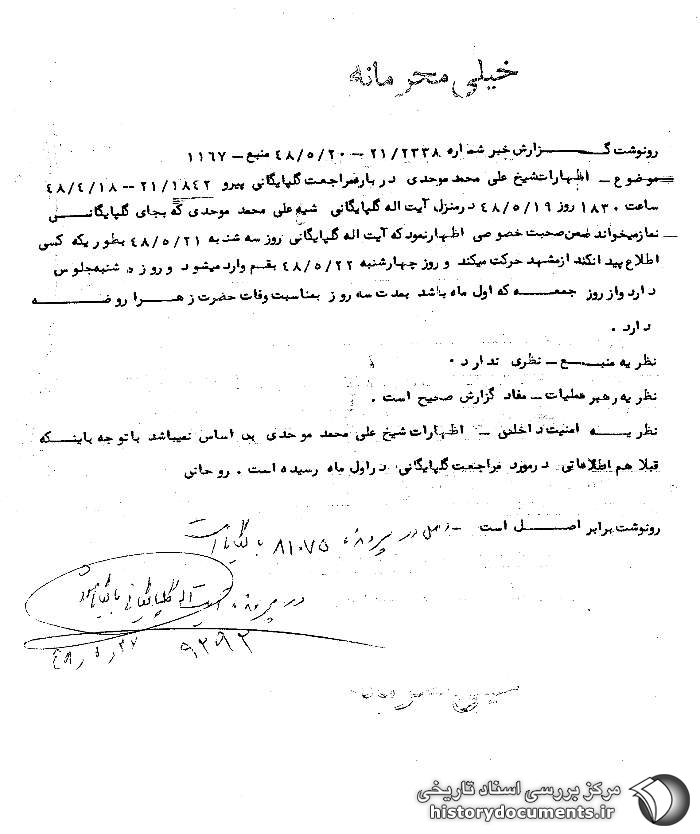 خیلی محرمانه
رونوشت گـــزارش خبر شماره ۲۱/۲۳۳۸ -- ۴۸/۵/۲۰ منبع - ۱۱۶۷
موضوع - اظهارات شیخ علی محمد موحدی درباره مراجعت گلپایگانی پیرو ۲۱/۱۸۴۲ -- ۴۸/۴/۱۸
ساعت ۱۸۳۰ روز ۴۸/۵/۱۹ در منزل آیت اله گلپایگانی شیخ علی محمد موحدی که بجای گلپایگانـــی
نماز میخواند ضمن صحبت خصوصی اظهار نمود که آیت اله گلپایگانی روز سه شنبه ۴۸/۵/۲۱ بطوریکه کسی
اطلاع پیدا نکند از مشهد حرکت میکند و روز چهارشنبه ۴۸/۵/۲۲ بقم وارد میشود و روز ۵ شنبه جلوس
دارد و از روز جمعـــه که اول ماه باشد بمدت سه روز بمناسبت وفات حضرت زهــرا روضــه
دارد .
نظریه منبـــع - نظری ندارد .
نظریه رهبر عملیات - مفاد گزارش صحیح است .
نظریـــه امنیت داخلی - اظهارات شیخ علی محمد موحدی بی اساس نمیباشد با توجه باینکه
قبلا هم اطلاعاتی در مورد مراجعت گلپایگانی در اول ماه رسیده است . روحانی
رونوشت برابر اصـــل است - اصل در پرونده ۸۱۰۷۵ بایگانی است
در پرونده آیت اله گلپایگانی بایگانی شود
۹۲۹۲
۴۸/۵/۲۷
خیلی محرمانه
مرکز بررسی اسناد تاریخی
historydocuments.ir